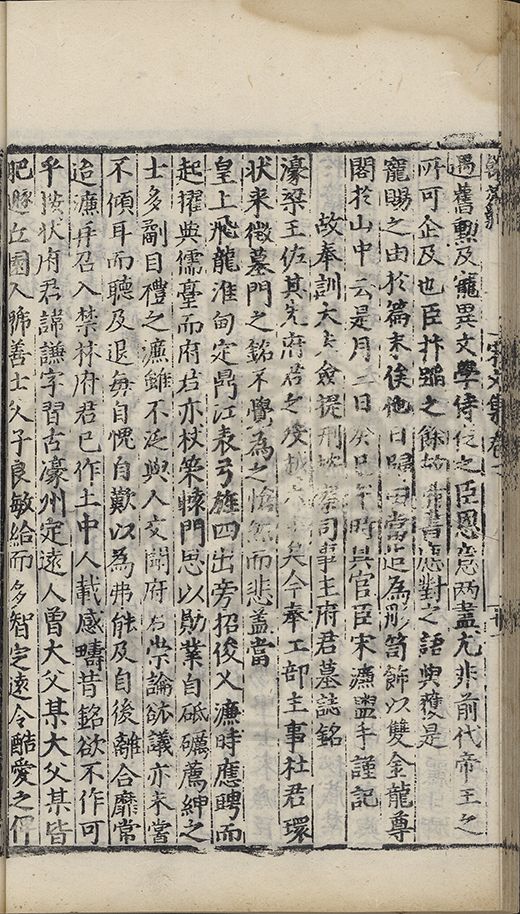 遇舊勳及寵異文學侍從之臣恩意兩盡尤非前代帝王之
所可企及也臣抃蹈之餘故備書應對之語與獲是
寵賜之由於篇末俟他日歸田當造為彫笥飾以雙金龍尊
閣於山中云是月二日癸巳午時具官臣宋濂盥手謹記
故奉訓大夫僉提刑按察司事王府君墓誌銘
濠梁王佐其先府君之歿矣今奉工部主事杜君環
狀來徵墓門之銘不覺為之愴然而悲蓋當
皇上飛龍淮甸定鼎江表弓旌四出旁招俊乂濂時應聘而
起擢典儒臺而府君亦杖策轅門思以勛業自砥礪薦紳之
士多副目禮之濂雖不泛與人交聞府君崇論竑議亦未嘗
不傾耳而聽及退每自愧自歎以為弗能及自後離合靡常
迨濂再召入禁林府君已作土中人載感疇昔銘欲不作可
乎按狀府君諱謙字習古濠州定遠人曾大父某大父某皆
肥遯丘園人號善士父子良敏給而多智定遠令酷愛之俾